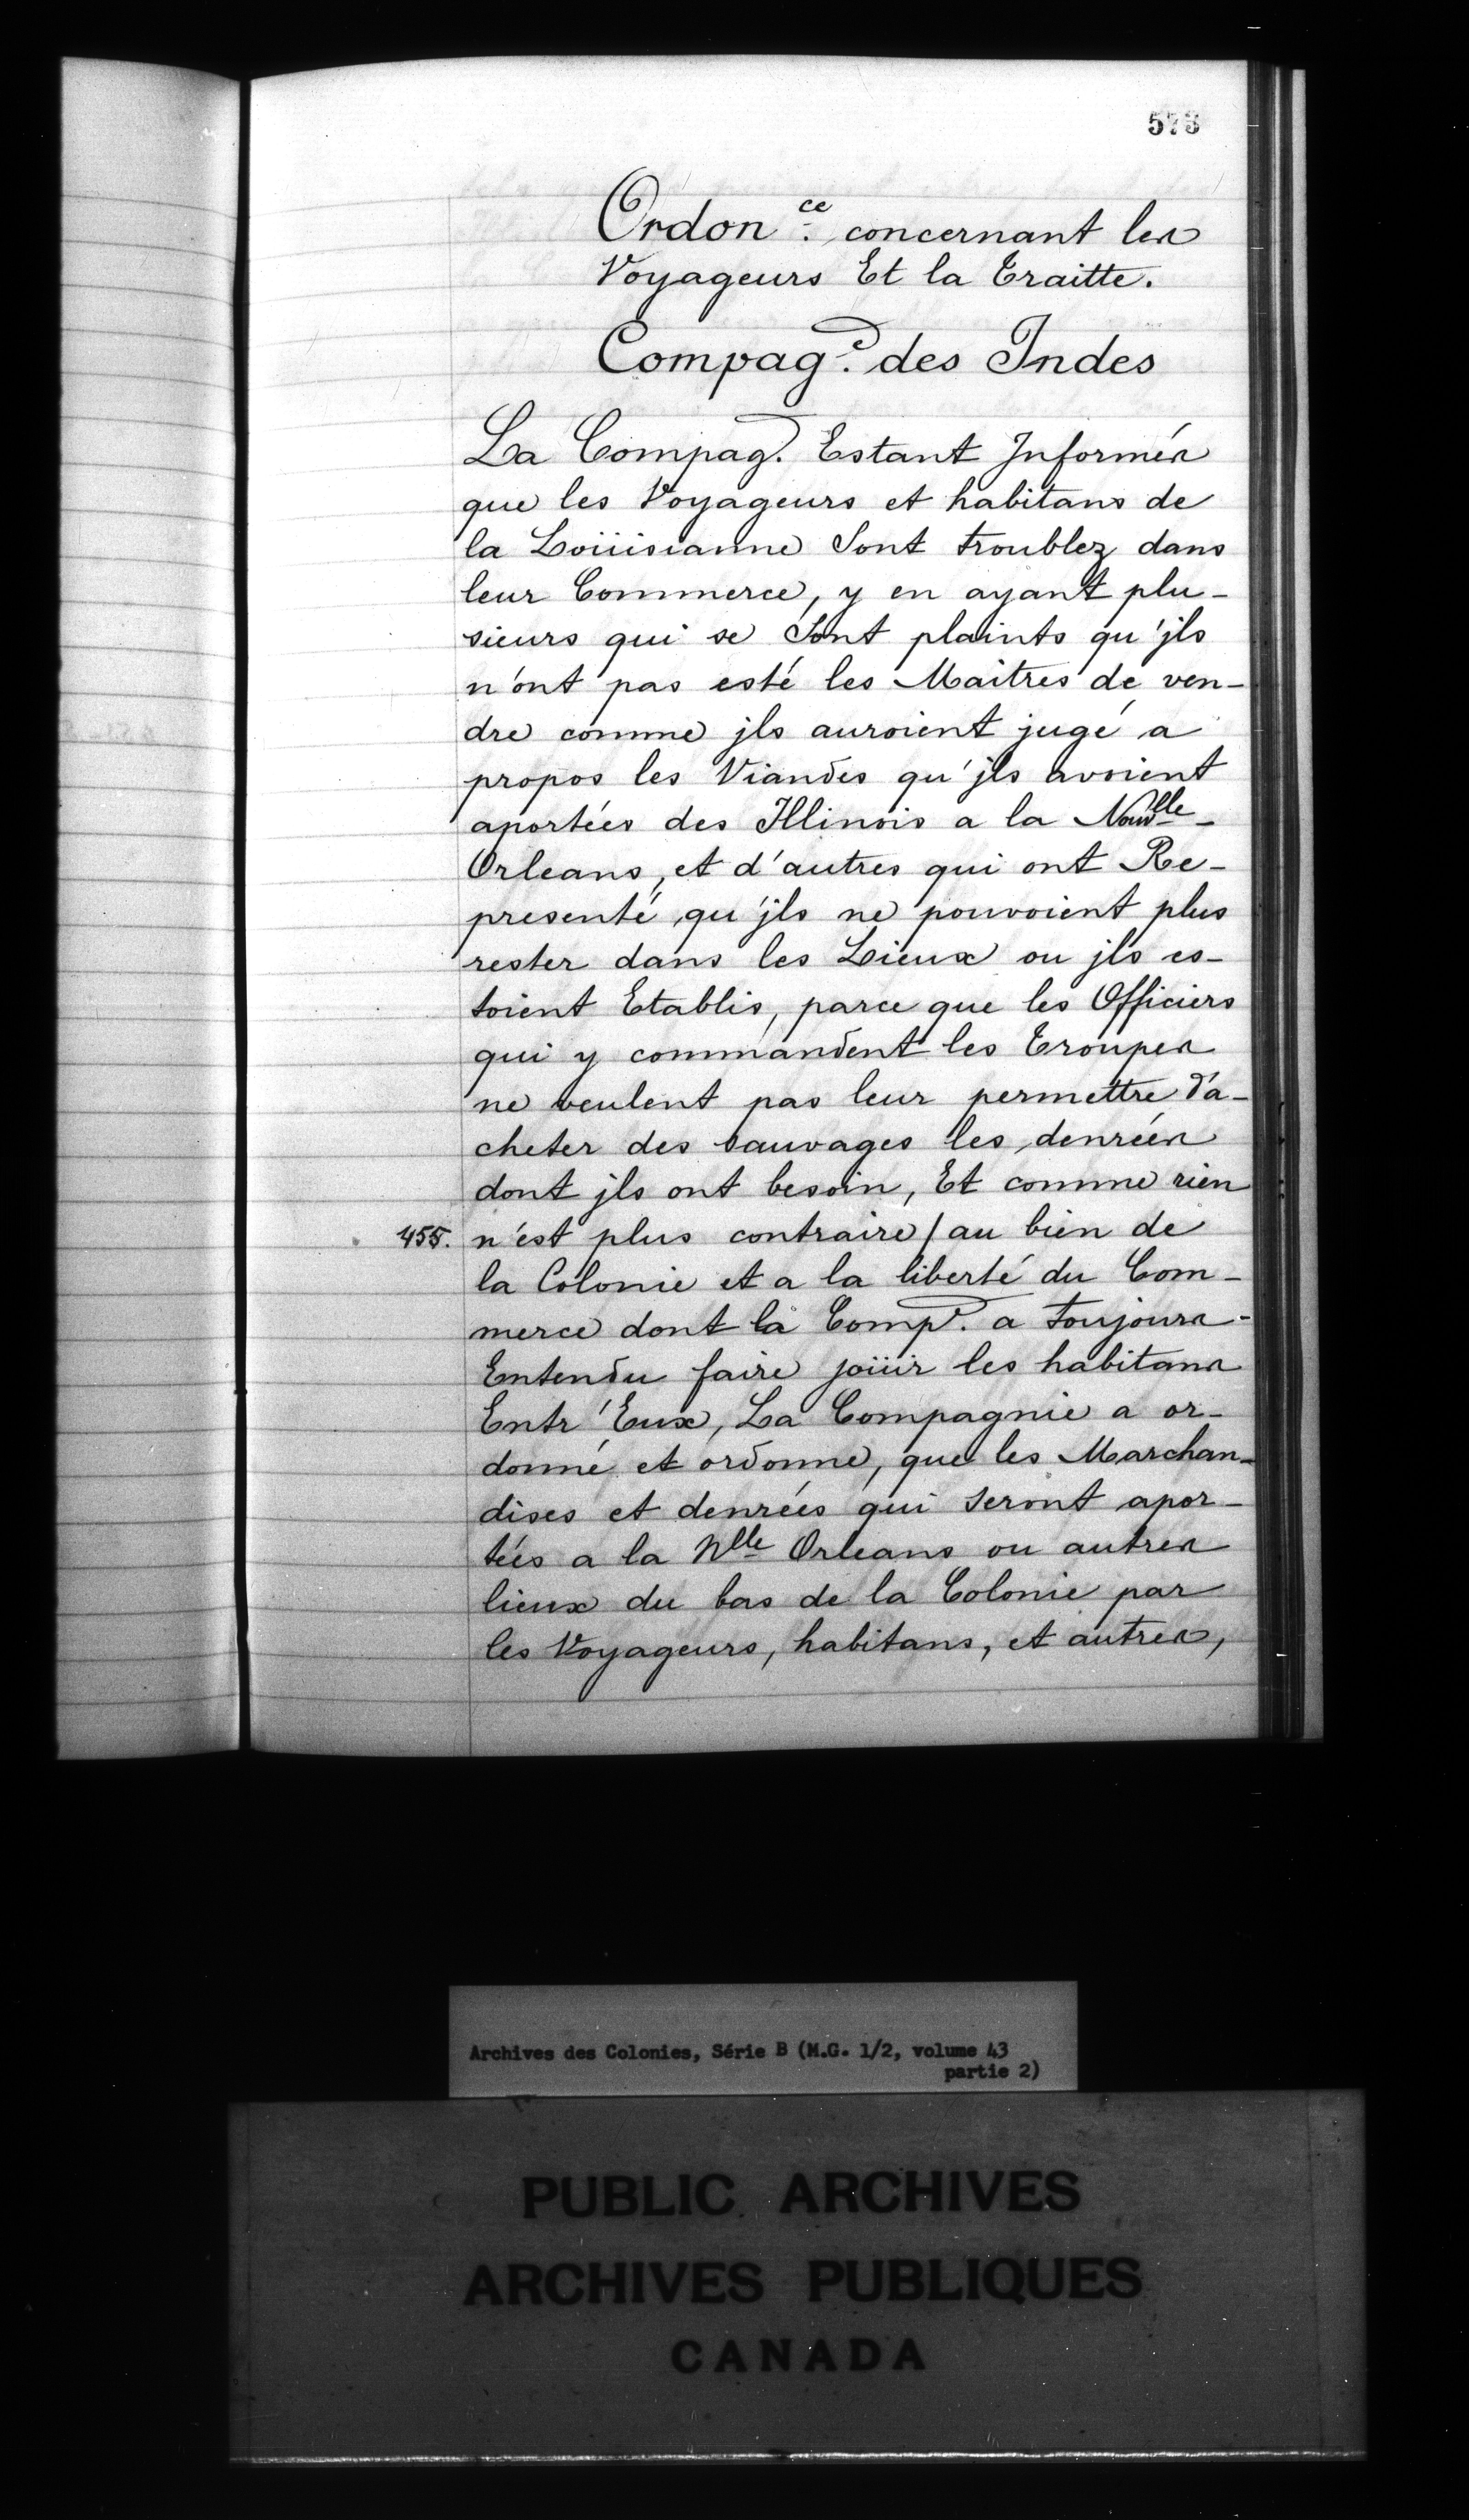 573
Ordon.ce concernant les
Voyageurs Et la Traitte.
Compag.e des Indes
La Compag. Estant Informée
que les Voyageurs et habitans de
la Loüisianne Sont troublez dans
leur Commerce, y en ayant plu-
sieurs qui se Sont plaints qu'jls
n'ont pas esté les Maitres de ven-
dre comme jls auroient jugé a
propos les Viandes qu'jls avoient
aportées des Illinois a la Nouvlle-
Orleans, et d'autres qui ont Re-
presenté qu'jls ne pouvoient plus
rester dans les Lieux ou jls es-
toient Etablis, parce que les Officiers
qui y commandent les Troupes
ne veulent pas leur permettre d'a-
cheter des sauvages les denrées
dont jls ont besoin, Et comme rien
455. n'est plus contraire / au bien de
la Colonie et a la liberté du Com-
merce dont la Comp. a toujours
Entendu faire joüir les habitans
Entr'Eux, La Compagnie a or-
donné et ordonne, que les Marchan-
dises et denrées qui seront apor-
tées a la Nlle Orleans ou autres
lieux du bas de la Colonie par
les Voyageurs, habitans, et autres,
Archives des Colonies, Série B (M.G. 1/2, volume 43
partie 2)
PUBLIC ARCHIVES
ARCHIVES PUBLIQUES
CANADA